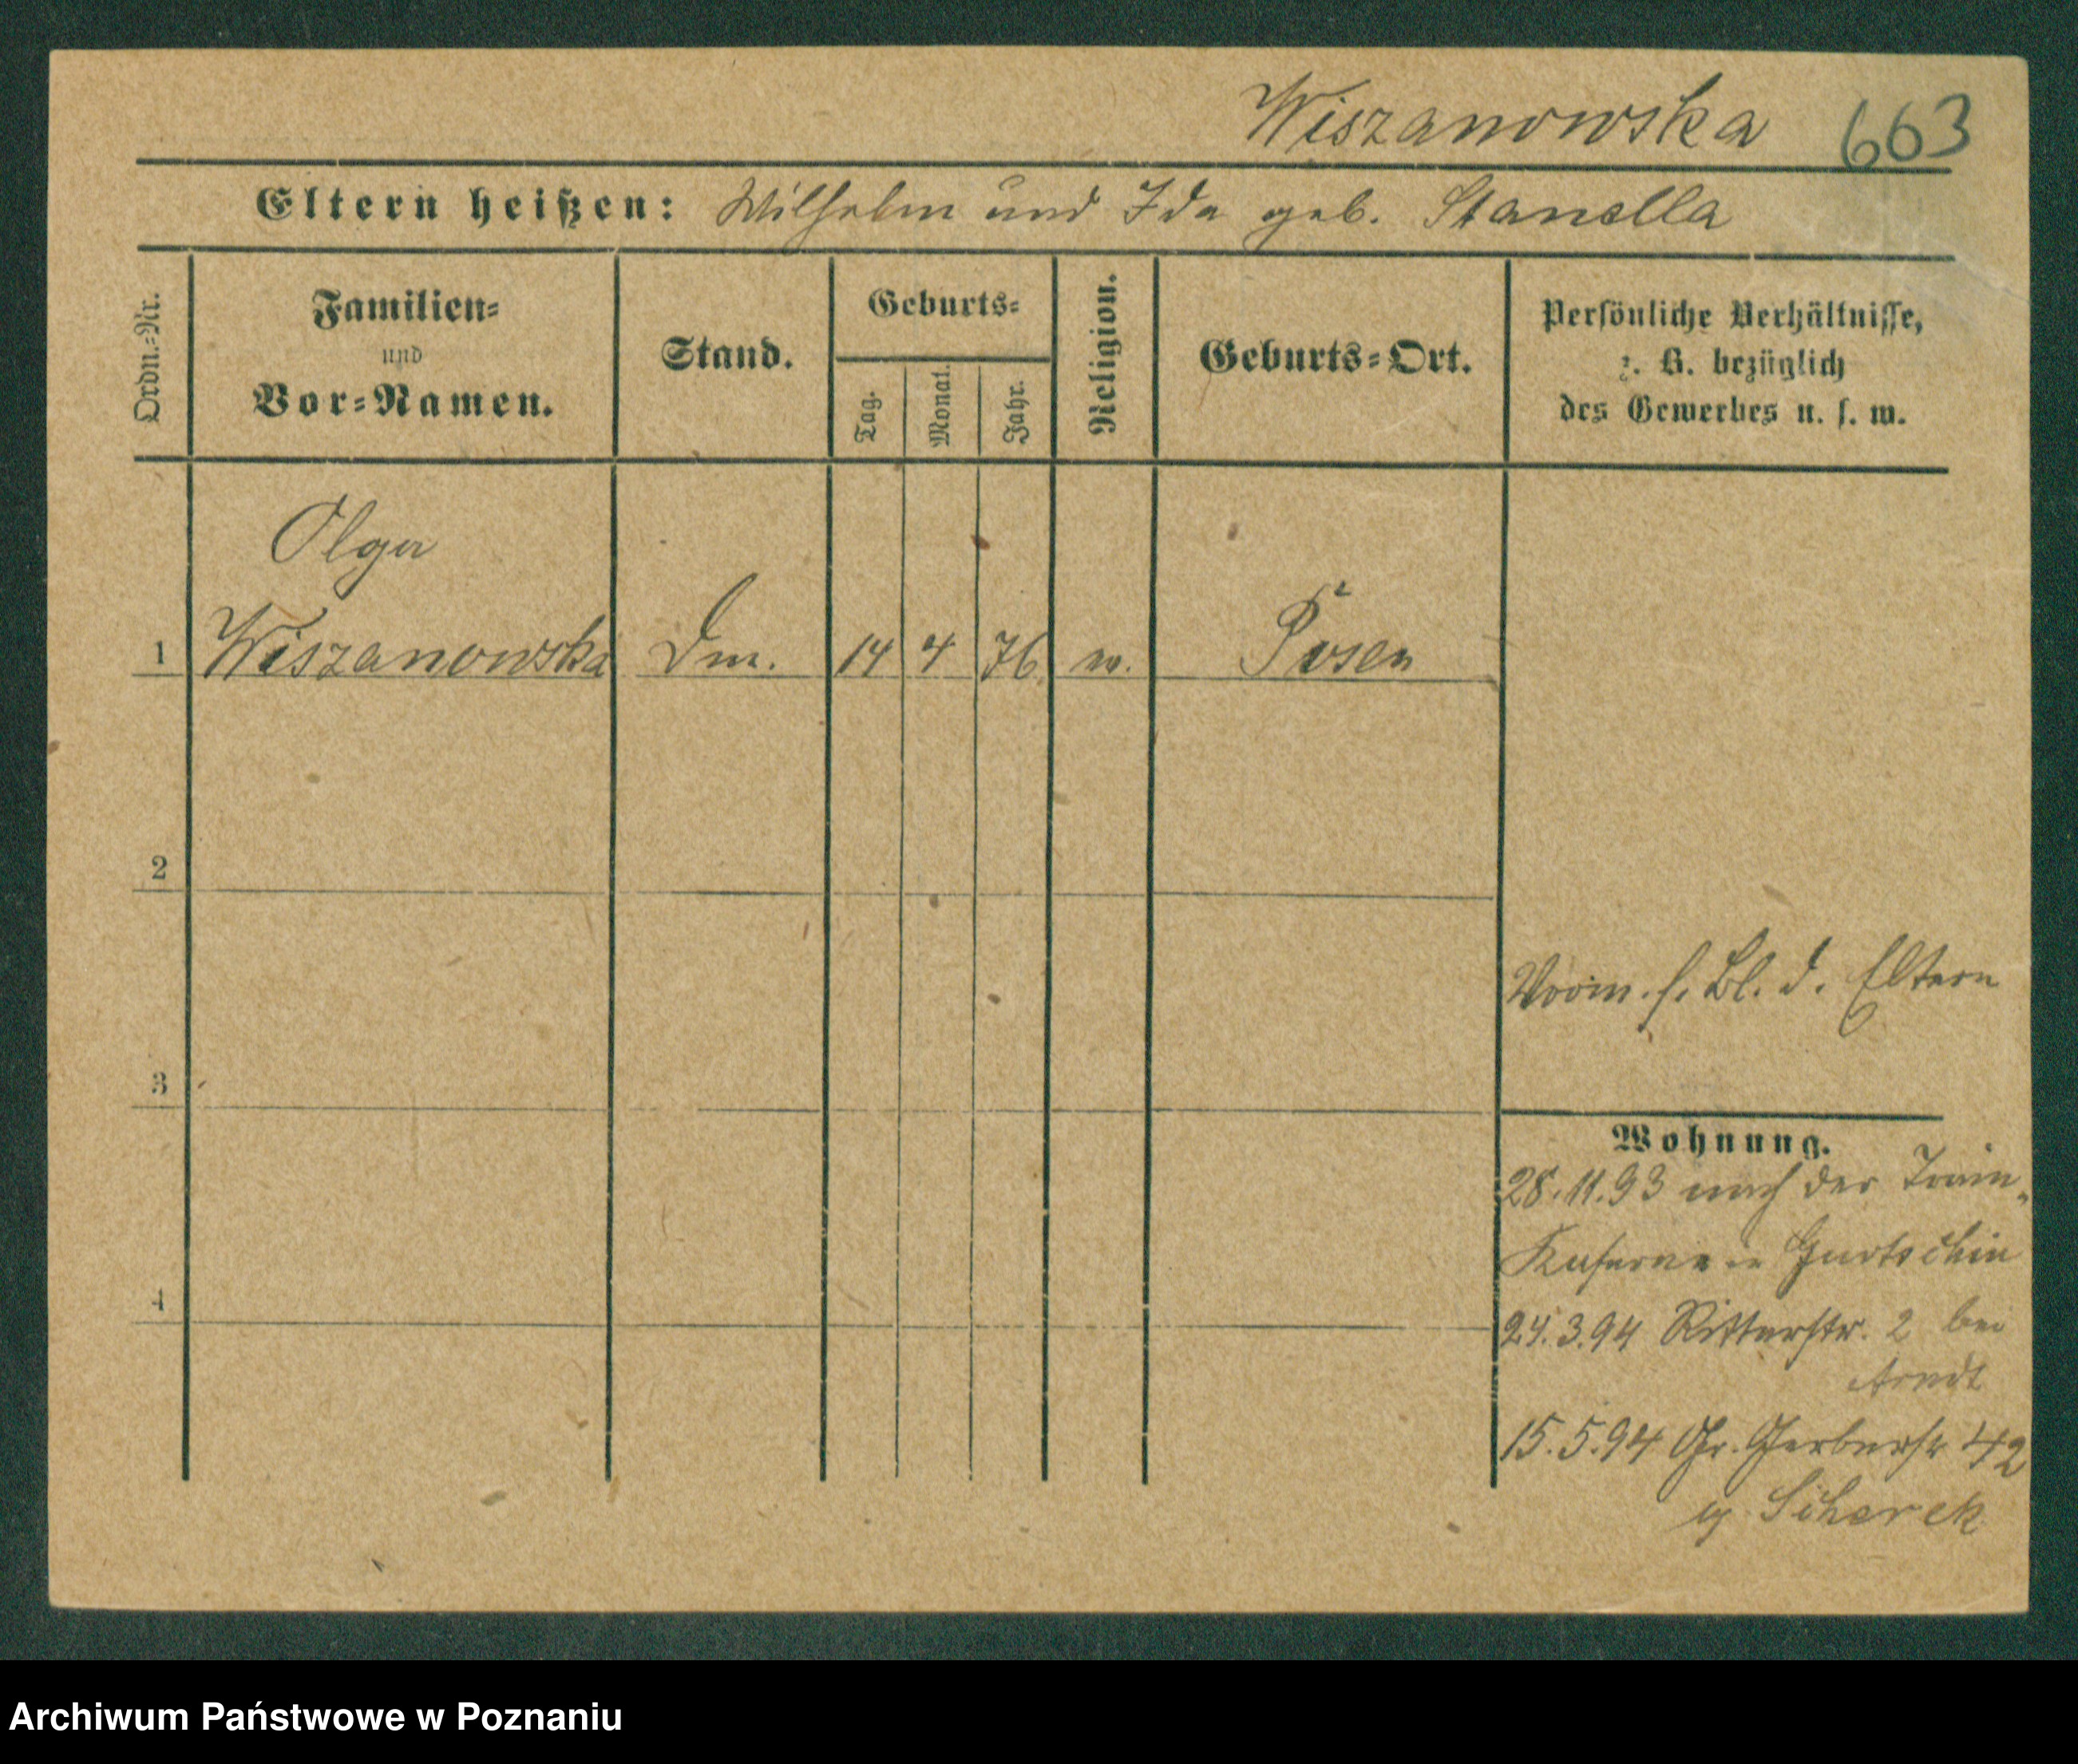 Wiszanowska 663
Eltern heißen: Wilhelm und Ida geb. Stanella
Ordn.-Nr.
Familien-
und
Vor-Namen.
Stand.
Geburts-
Tag.
Monat.
Jahr.
Religion.
Geburts-Ort.
Persönliche Verhältnisse,
z. B. bezüglich
des Gewerbes u. s. w.
Olga
1 Wiszanowska Dm. 14 4 76 Posen
2
Vorm. s. Bl. d. Eltern
3
Wohnung.
28.11.93 nach der Train-
Kaserne in Gurtschin
4
24.3.94 Ritterstr. 2 bei
Arndt
15.5.94 Gr. Gerberstr 42
Scherek
Archiwum Państwowe w Poznaniu